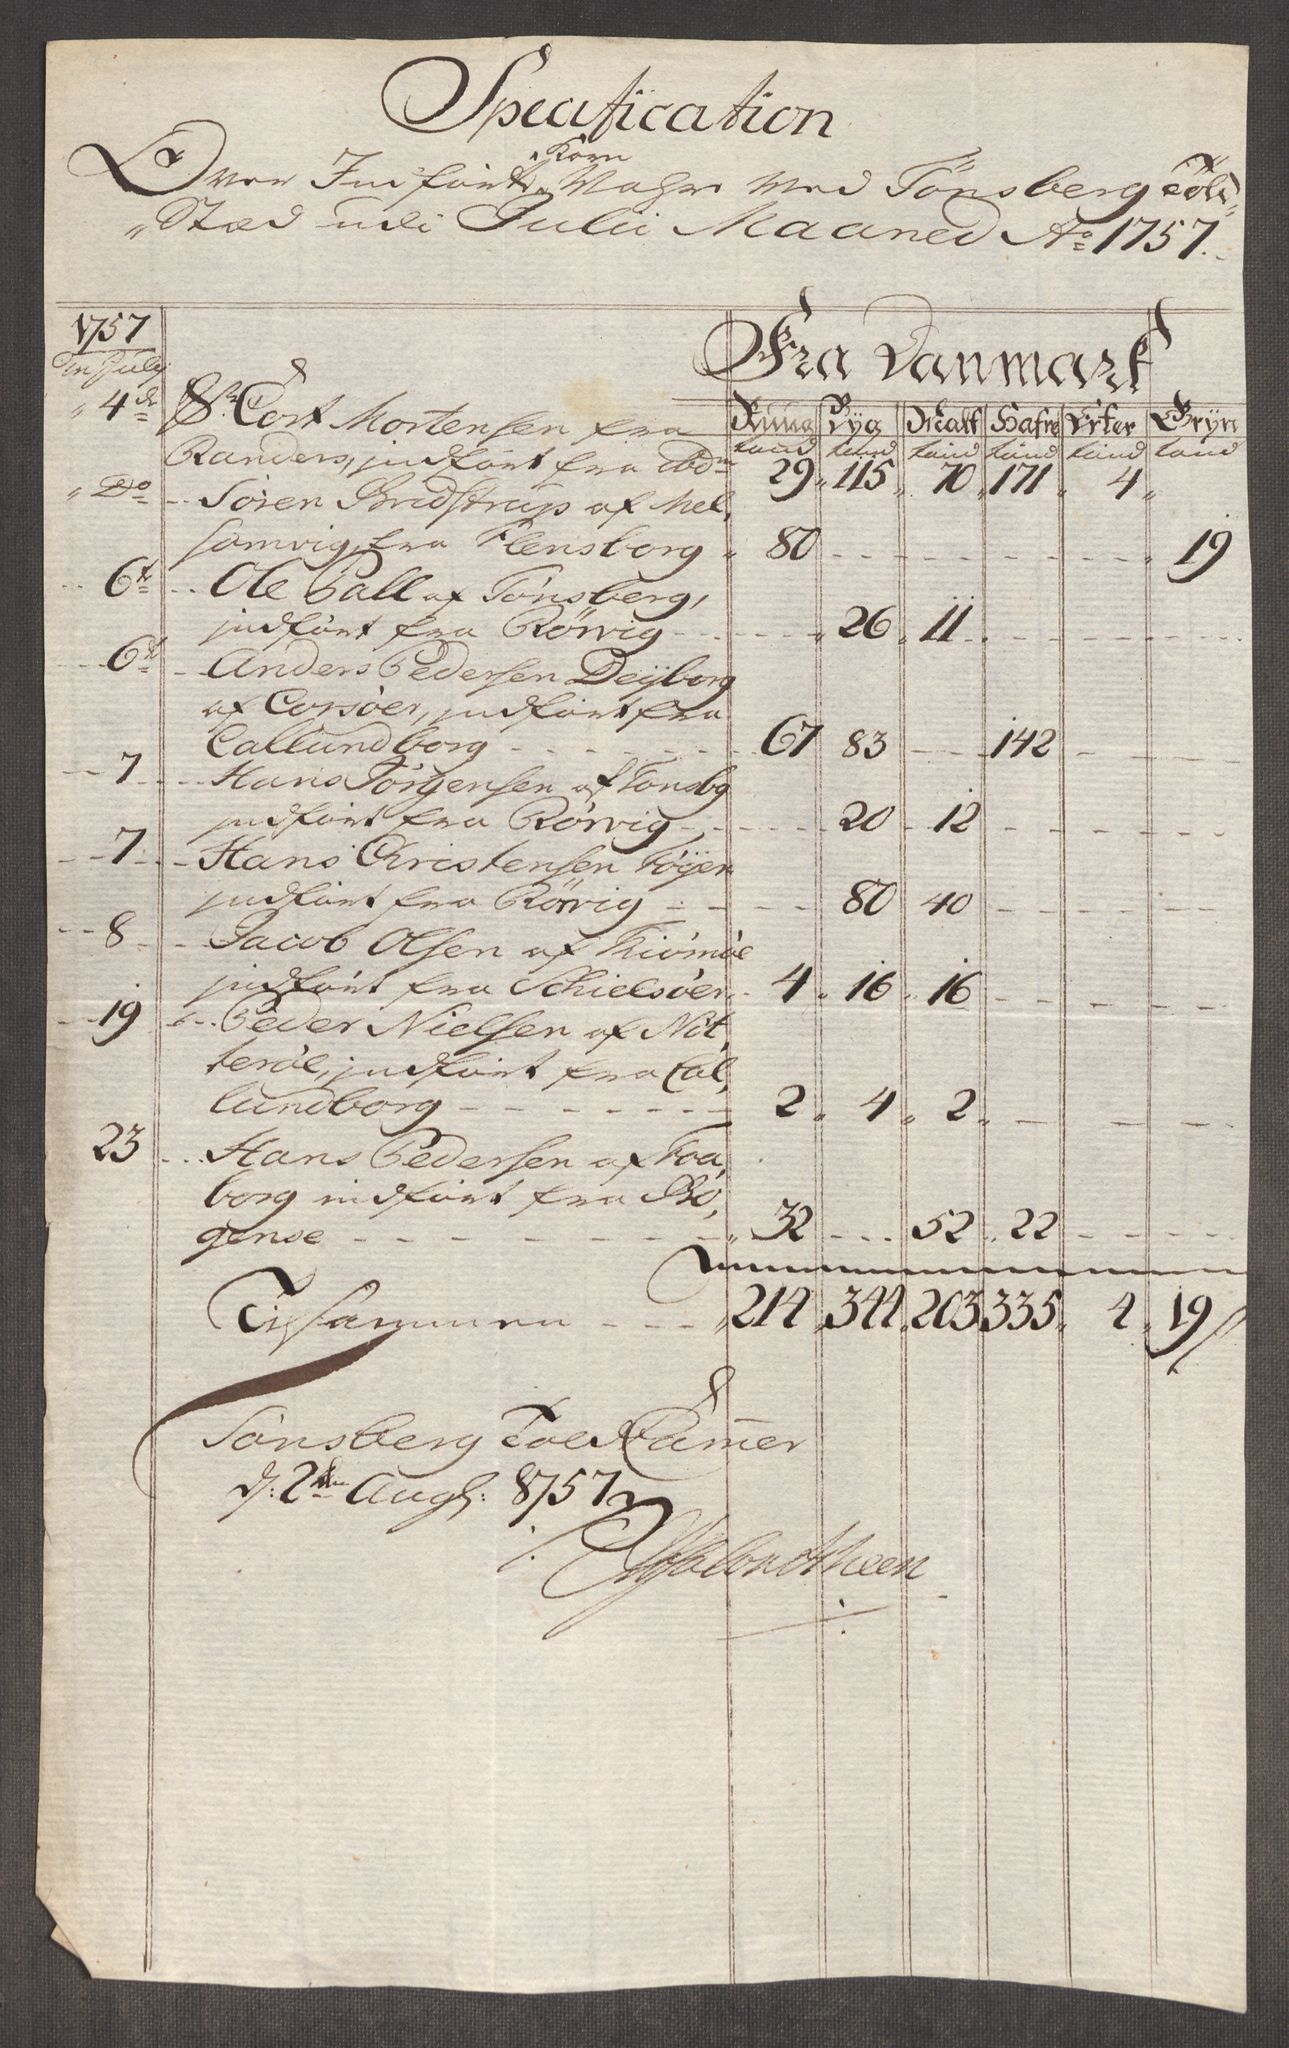 Specification
Over Indførte Korn Vahre ved Tönsberg Told
Stæd udi Julii Maaned Ao 1757.
1757 Fra Danmark
Den July
4de Sr Cort Mortensen fra Rug Byg Malt Hafre Erter Gryn
tønd tønd tønd tønd tønd tønd
Randers, indført fra do 29 115 70 171 4
Do Søren Bredstrup af Mel,
somvig, fra Flensborg 80 19
6te Ole Pall af Tönsberg,
indført fra Rörvig 26 11
6te Anders Pedersen Deyborg
af Corsöer, indført fra
Callundborg 67 83 142
7 Hans Jörgensen af Tonsbg
indført fra Rörvig 20 12
7 Hans Christensen Föyen
indført fra Rörvig 80 40
8 Jacob Olsen af Kiömöe
indført fra Schielsöer 4 16 16
19 Peder Nielsen af Not,
teröe, indført fra Cal,
lundborg 2 4 2
23 Hans Pedersen af Faa,
borg indført fra Bo,
gense 32 52 22
Tilsammen 214 344 203 335 4 19
Tönsberg Told Cammer
d: 2den Aug: 1757